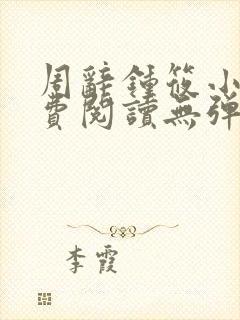 周辭鍾筱小
費閱讀無彈
李霞